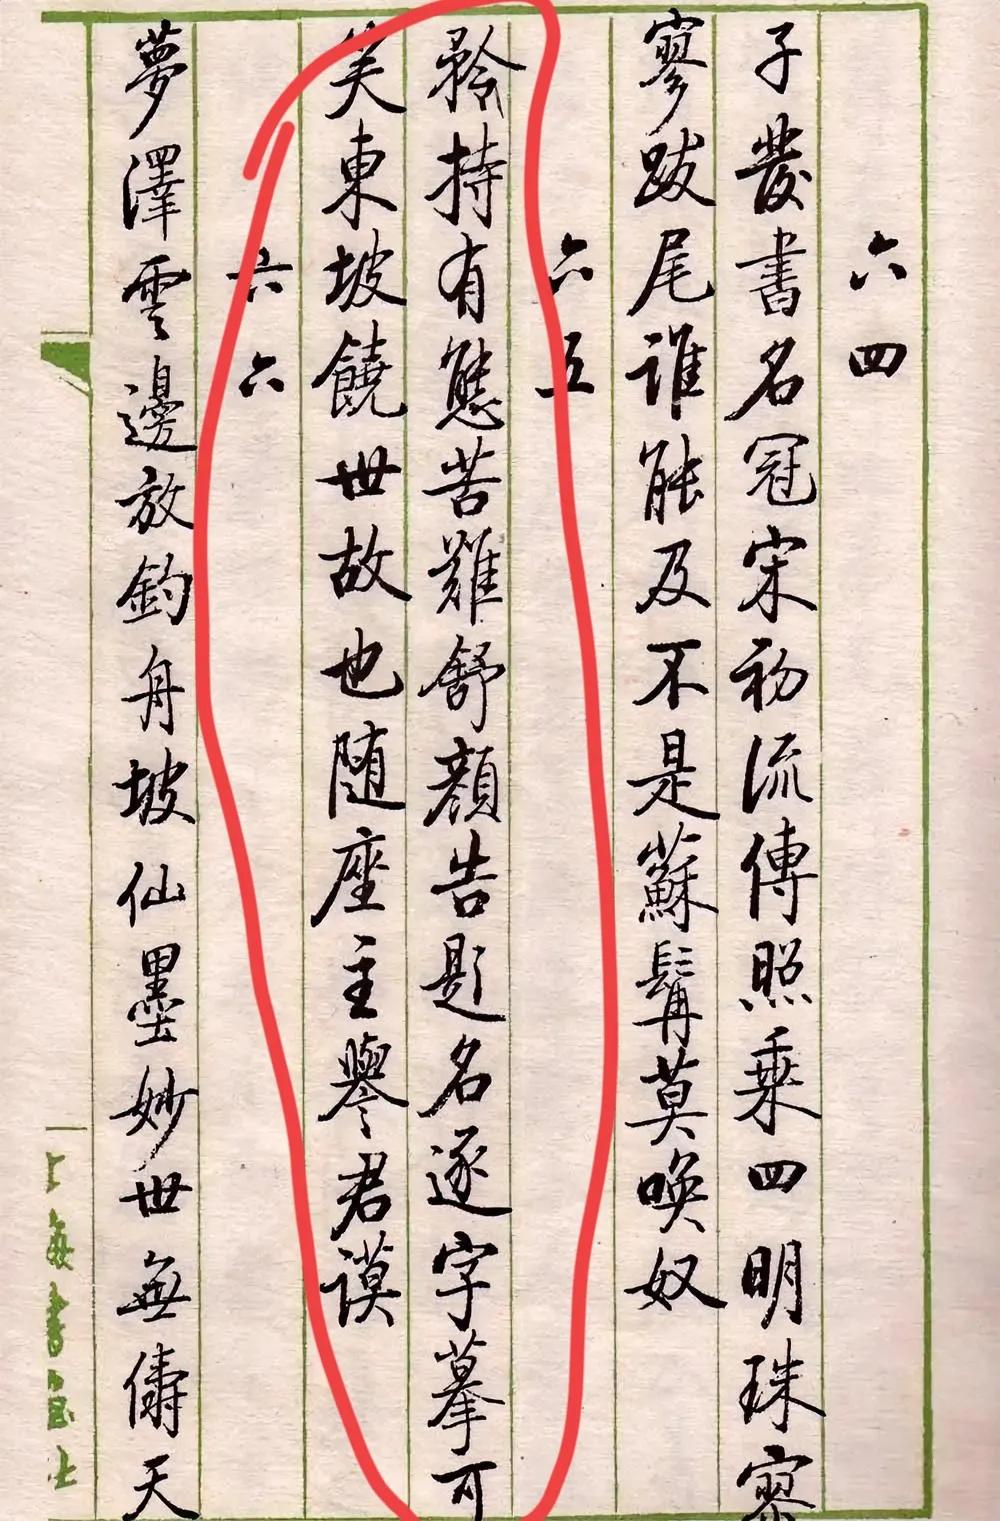 六四
子發書名冠宋初流傳照乘四明珠寥
寥跋尾誰能及不是蘇髯莫喚奴
六五
矜持有態苦難舒顏告題名逐字摹可
笑東坡饒世故也随座主譽君謨
六六
夢澤雲邊放釣舟坡仙墨妙世無儔天
上海書画社